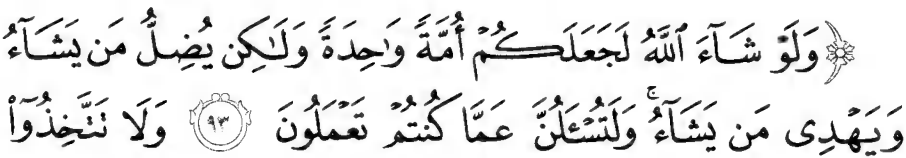 ﴿وَلَوْ شَآءَ ٱللَّهُ لَجَعَلَكُمْ أُمَّةً وَٰحِدَةً وَلَٰكِن يُضِلُّ مَن يَشَآءُ
وَيَهْدِى مَن يَشَآءُ ۚ وَلَتُسْـَٔلُنَّ عَمَّا كُنتُمْ تَعْمَلُونَ ٩٣ وَلَا تَتَّخِذُوٓا۟